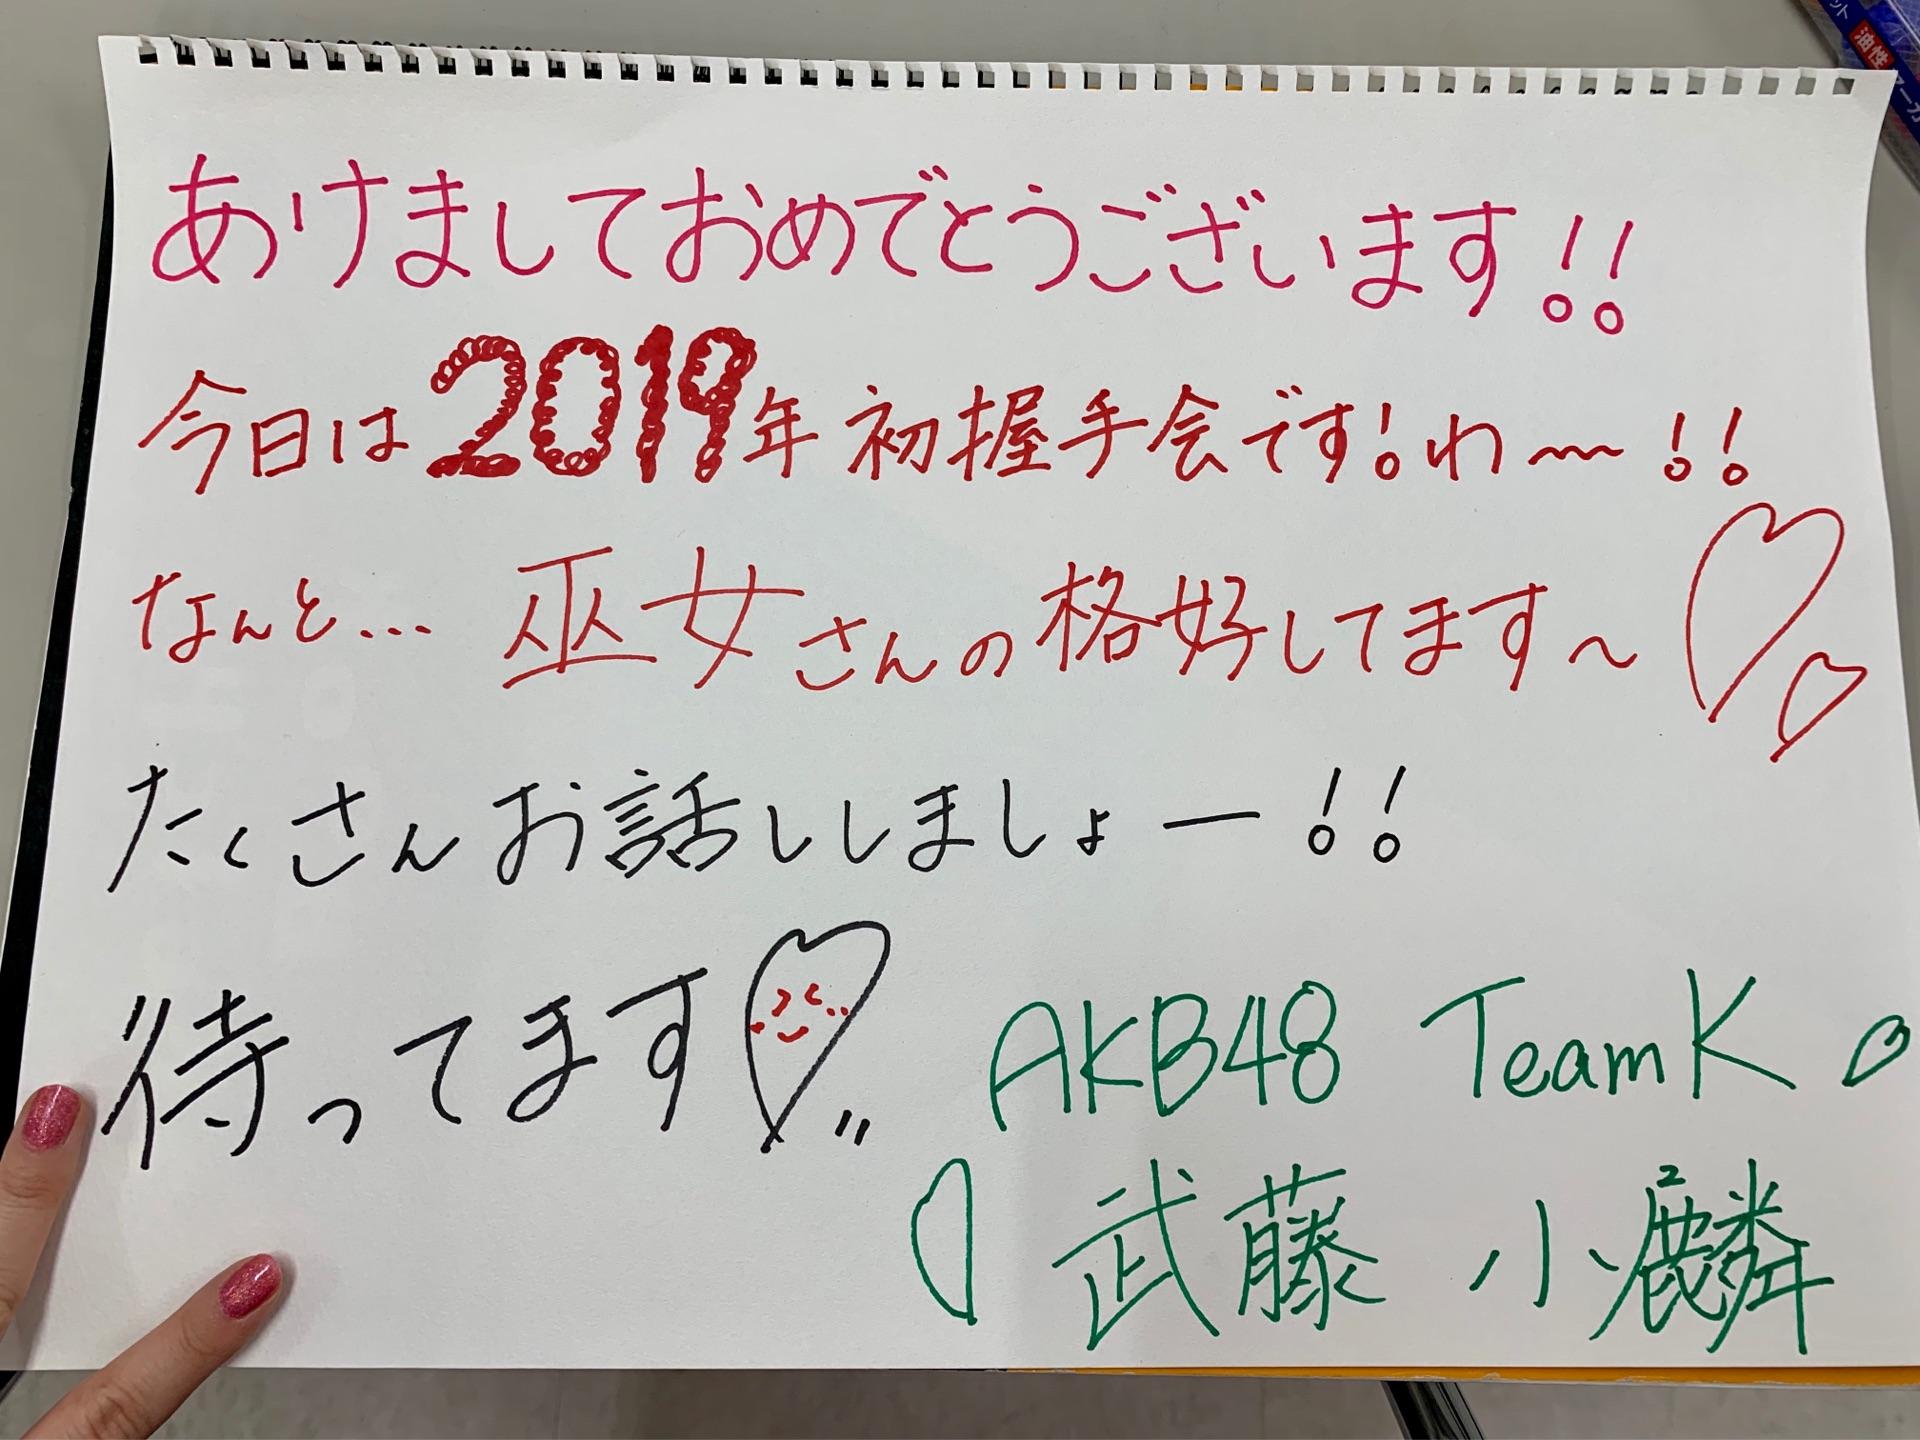 あけましておめでとうございます!!
今日は2019年初握手会です!わ〜!!
なんと... 巫女さんの格好してます〜
たくさんお話ししましょー!!
待ってます
AKB48 TeamK
武藤 小麟
油性